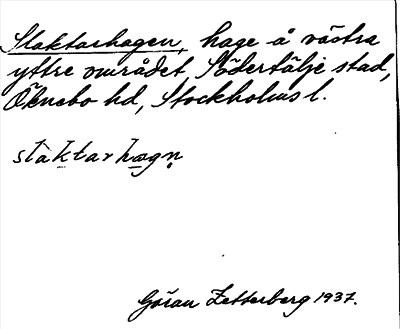 Slaktarhagen, hage å västra
yttre området, Södertälje stad,
Öknebo hd, Stockholms l.
slaktarhagn̥
Göran Zetterberg 1937.